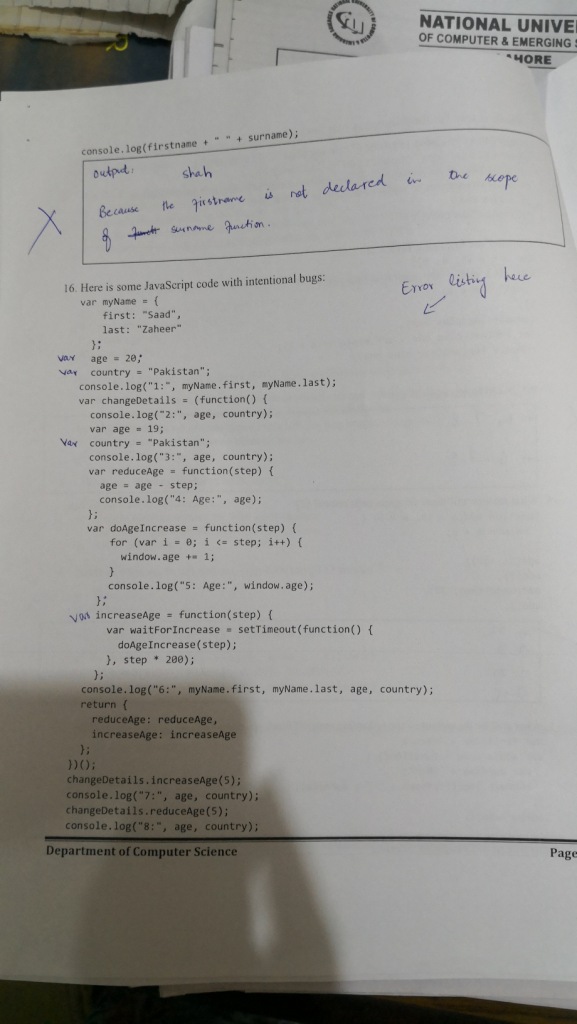 NATIONAL UNIVE
OF COMPUTER & EMERGING S
AHORE
console.log(firstname + " " + surname);
output: shah
Because the firstname is not declared in the scope
of surname function.
16. Here is some JavaScript code with intentional bugs:
Error listing here
var myName = {
first: "Saad",
last: "Zaheer"
};
var age = 20;
var country = "Pakistan";
console.log("1:", myName.first, myName.last);
var changeDetails = (function() {
console.log("2:", age, country);
var age = 19;
var country = "Pakistan";
console.log("3:", age, country);
var reduceAge = function(step) {
age = age - step;
console.log("4: Age:", age);
};
var doAgeIncrease = function(step) {
for (var i = 0; i <= step; i++) {
window.age += 1;
}
console.log("5: Age:", window.age);
};
var increaseAge = function(step) {
var waitForIncrease = setTimeout(function() {
doAgeIncrease(step);
}, step * 200);
};
console.log("6:", myName.first, myName.last, age, country);
return {
reduceAge: reduceAge,
increaseAge: increaseAge
};
})();
changeDetails.increaseAge(5);
console.log("7:", age, country);
changeDetails.reduceAge(5);
console.log("8:", age, country);
Department of Computer Science Page